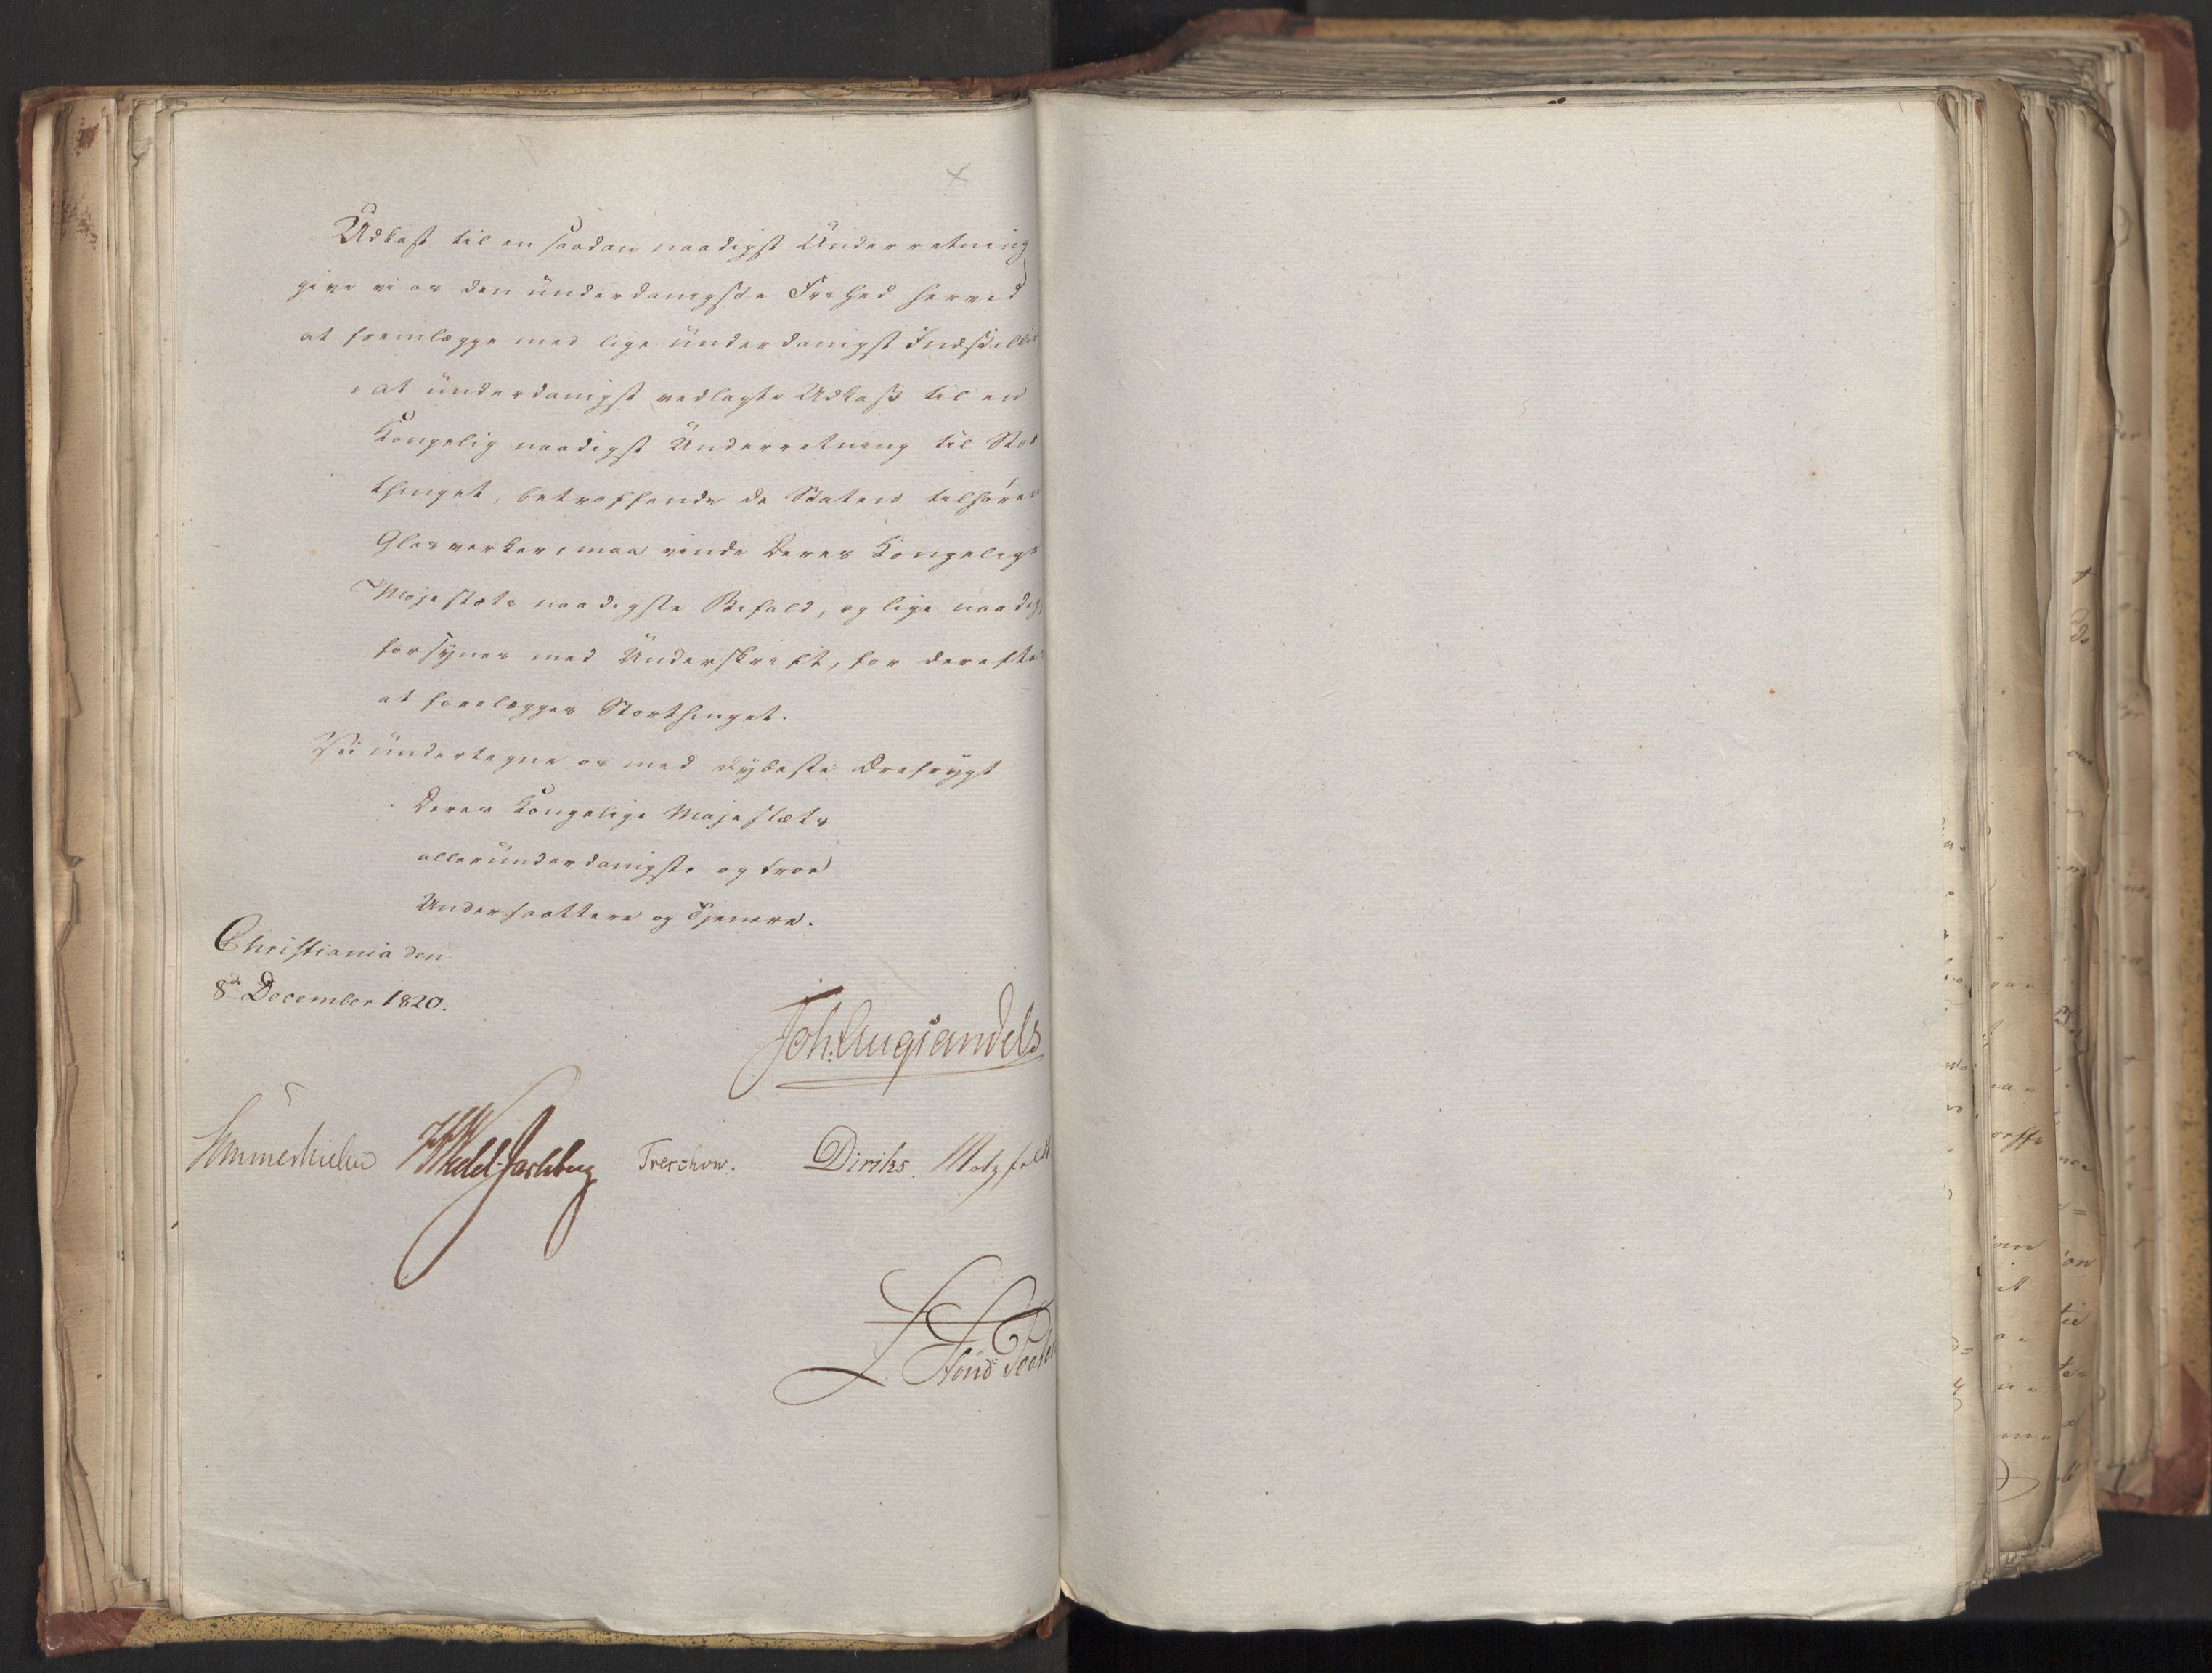 Udkast til en saadan naadigst Underretning
give vi os den underdanigste Frihed herved
at fremlægge med lige underdanigst Indstilli
at underdanigst vedlagte Udkast til en
Kongelig naadigst Underretning til Stor
thinget, betræffende de Staten tilhøren
Glasværker, maa vinde Deres Kongelige
Majestæts naadigste Bifald, og lige naadigst
forsynes med Underskrift, for derefter
at forelægges Storthinget.
Vi undertegne os med dybeste Ærefrygt
Deres Kongelige Majestæts
allerunderdanigste og troe
Undersaattere og Tjenere.
Christiania den
8de December 1820.
Joh: Aug Sandels
Sommerhielm Wedel-Jarlsberg Treschow. Diriks. Motzfeldt